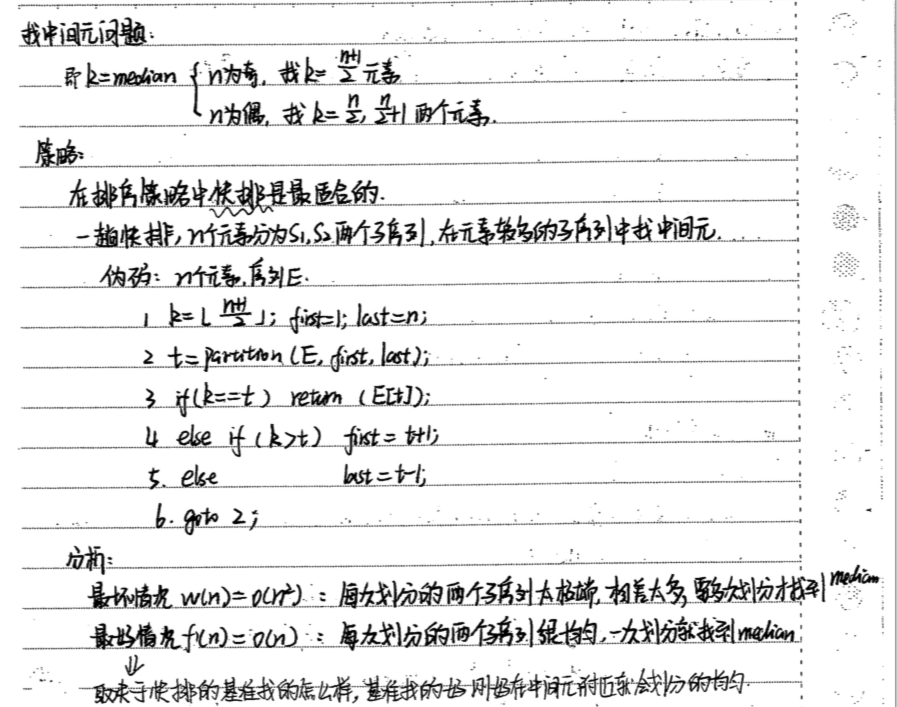 找中间元问题:
即k=median { n为奇, 找k= (n+1)/2 元素
n为偶, 找k= n/2, n/2+1 两个元素.
策略:
在排序策略中快排是最适合的.
一趟快排, n个元素分为S1,S2两个子序列, 在元素较多的子序列中找中间元.
伪码: n个元素, 序列E.
1 k=⌊ (n+1)/2 ⌋; first=1; last=n;
2 t=partition (E, first, last);
3 if(k==t) return (E[t]);
4 else if (k>t) first = t+1;
5. else last = t-1;
6. goto 2;
分析:
最坏情况 w(n)=O(n²) : 每次划分的两个子序列太极端, 相差太多, 要多次划分才找到median
最好情况 f(n)=O(n) : 每次划分的两个子序列很均匀, 一次划分就找到median
⇓
取决于快排的基准找的怎么样, 基准找的好 刚好在中间元附近就会划分的均匀.